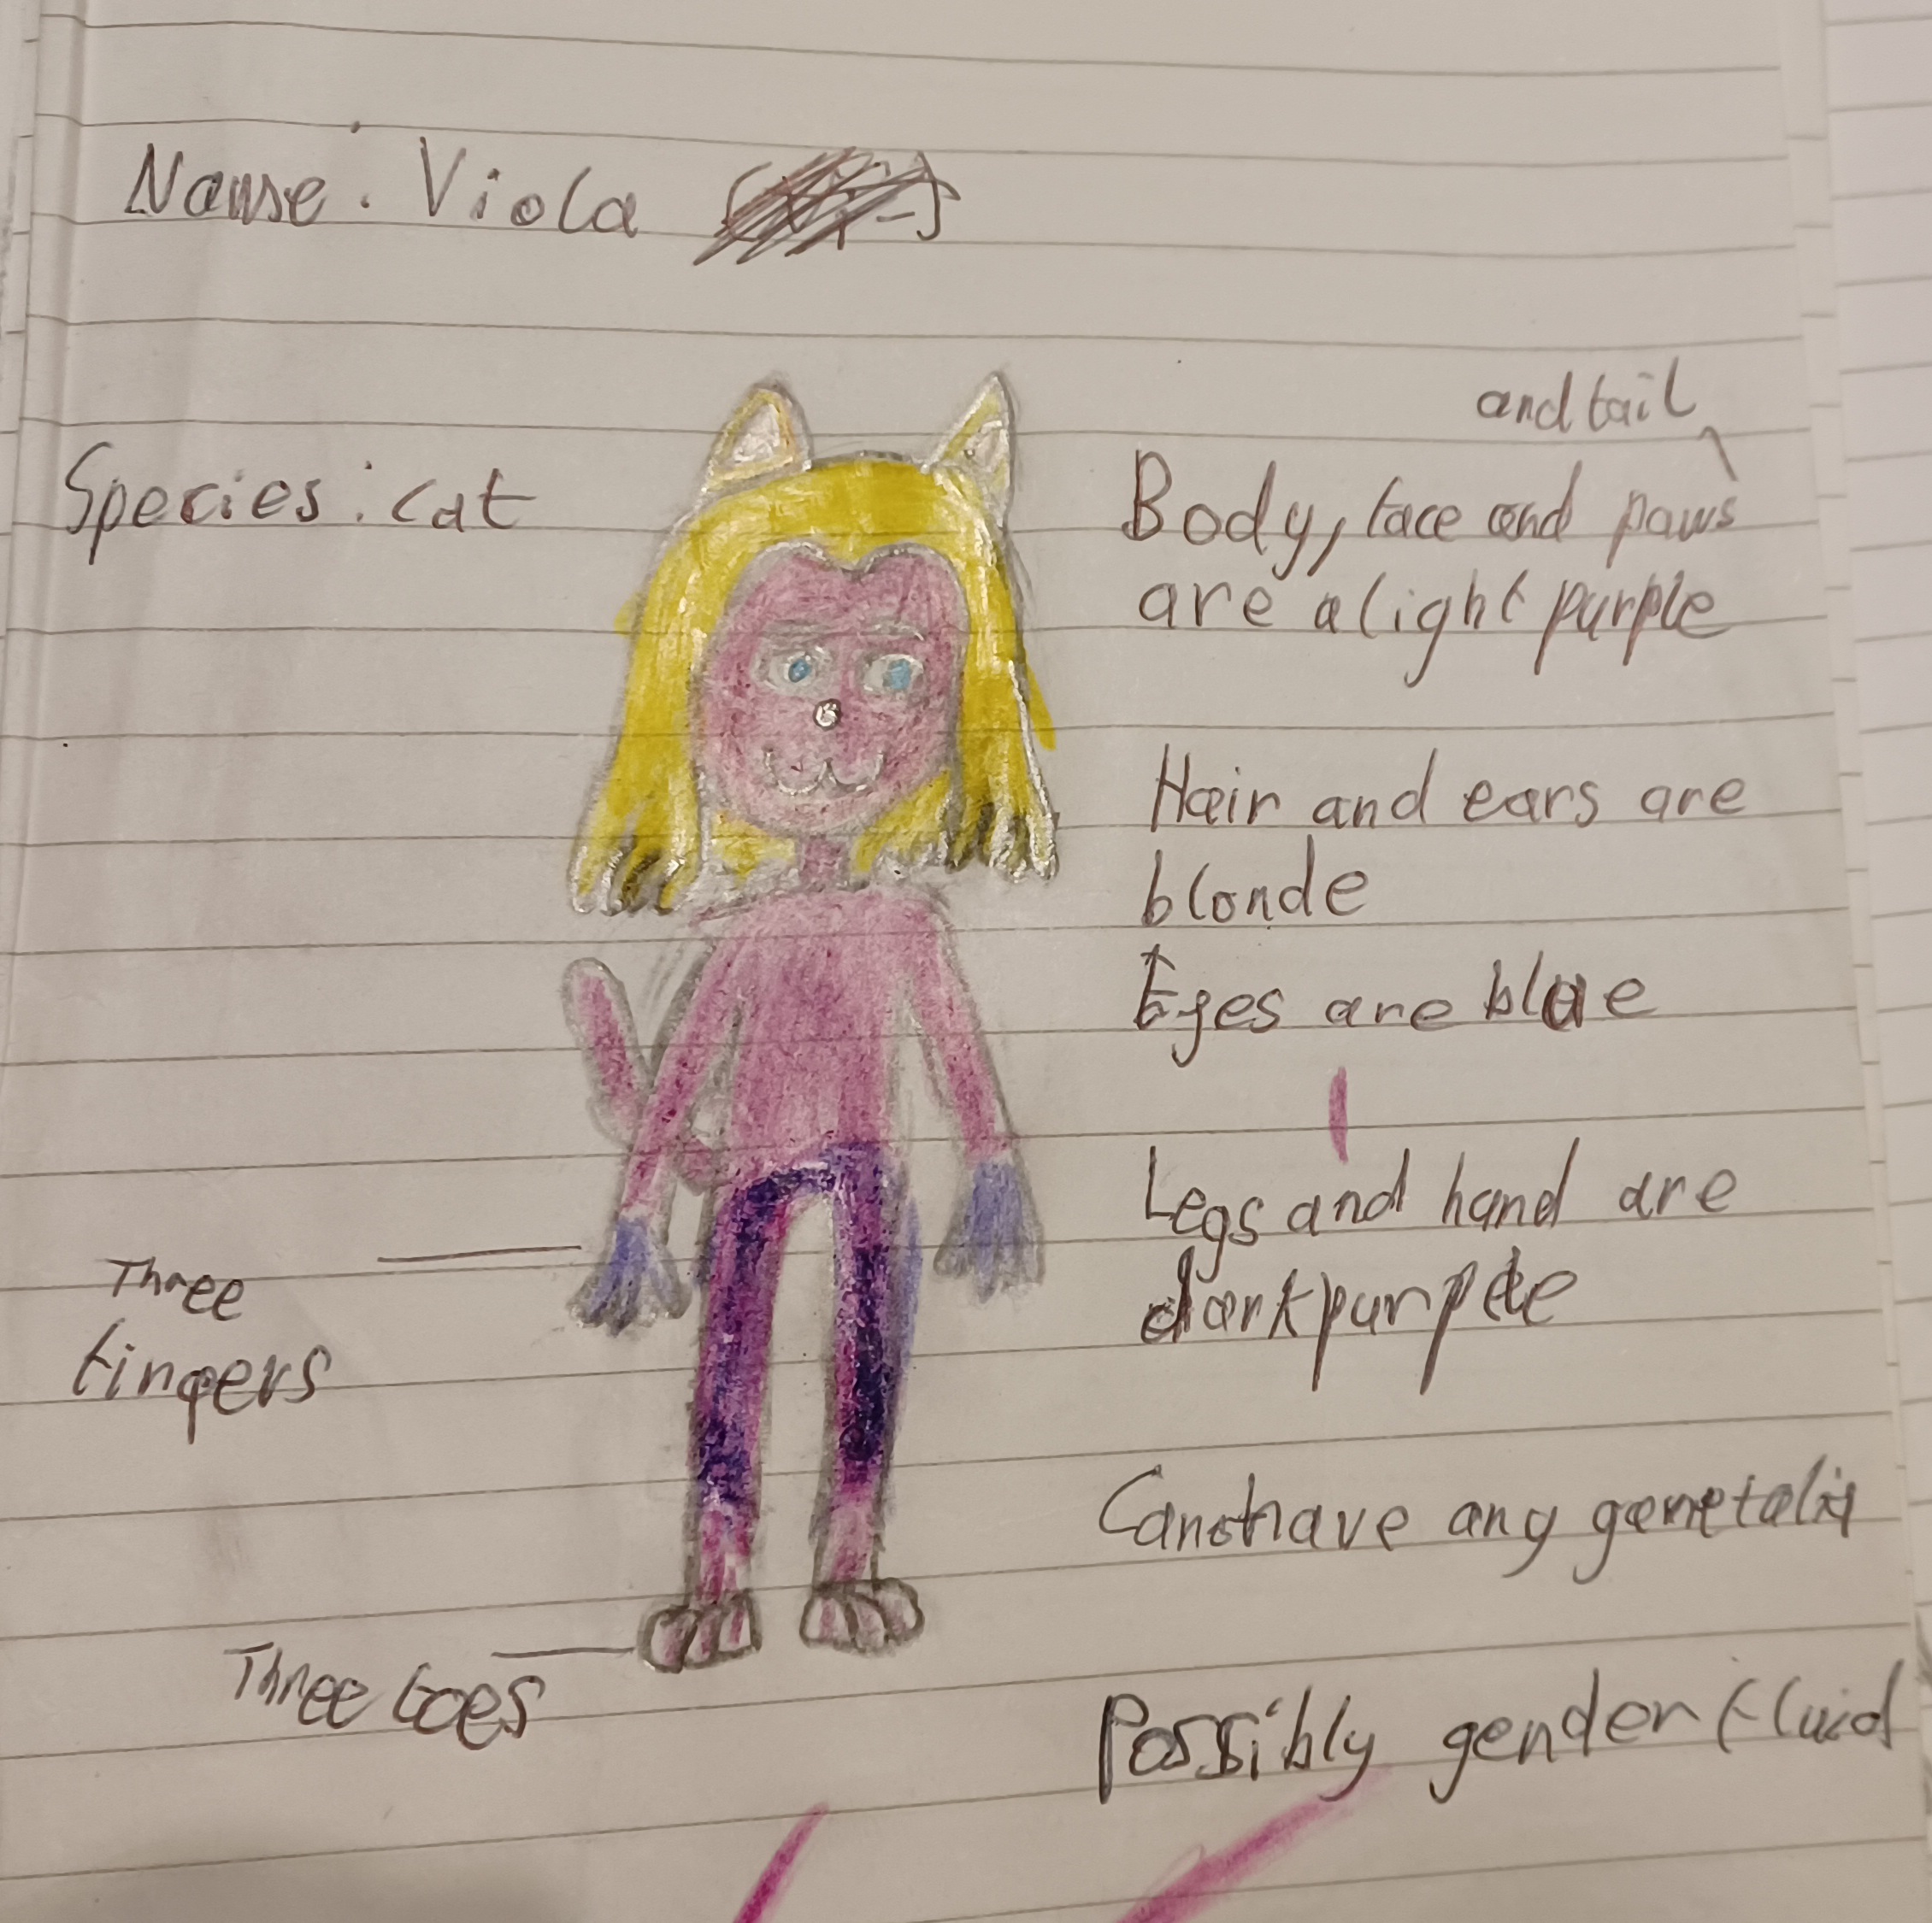 Name: Viola
Species: cat
and tail
Body, face and paws
are a light purple
Hair and ears are
blonde
Eyes are blue
Legs and hand are
dark purple
Three
fingers
Three toes
any
Possibly genderfluid